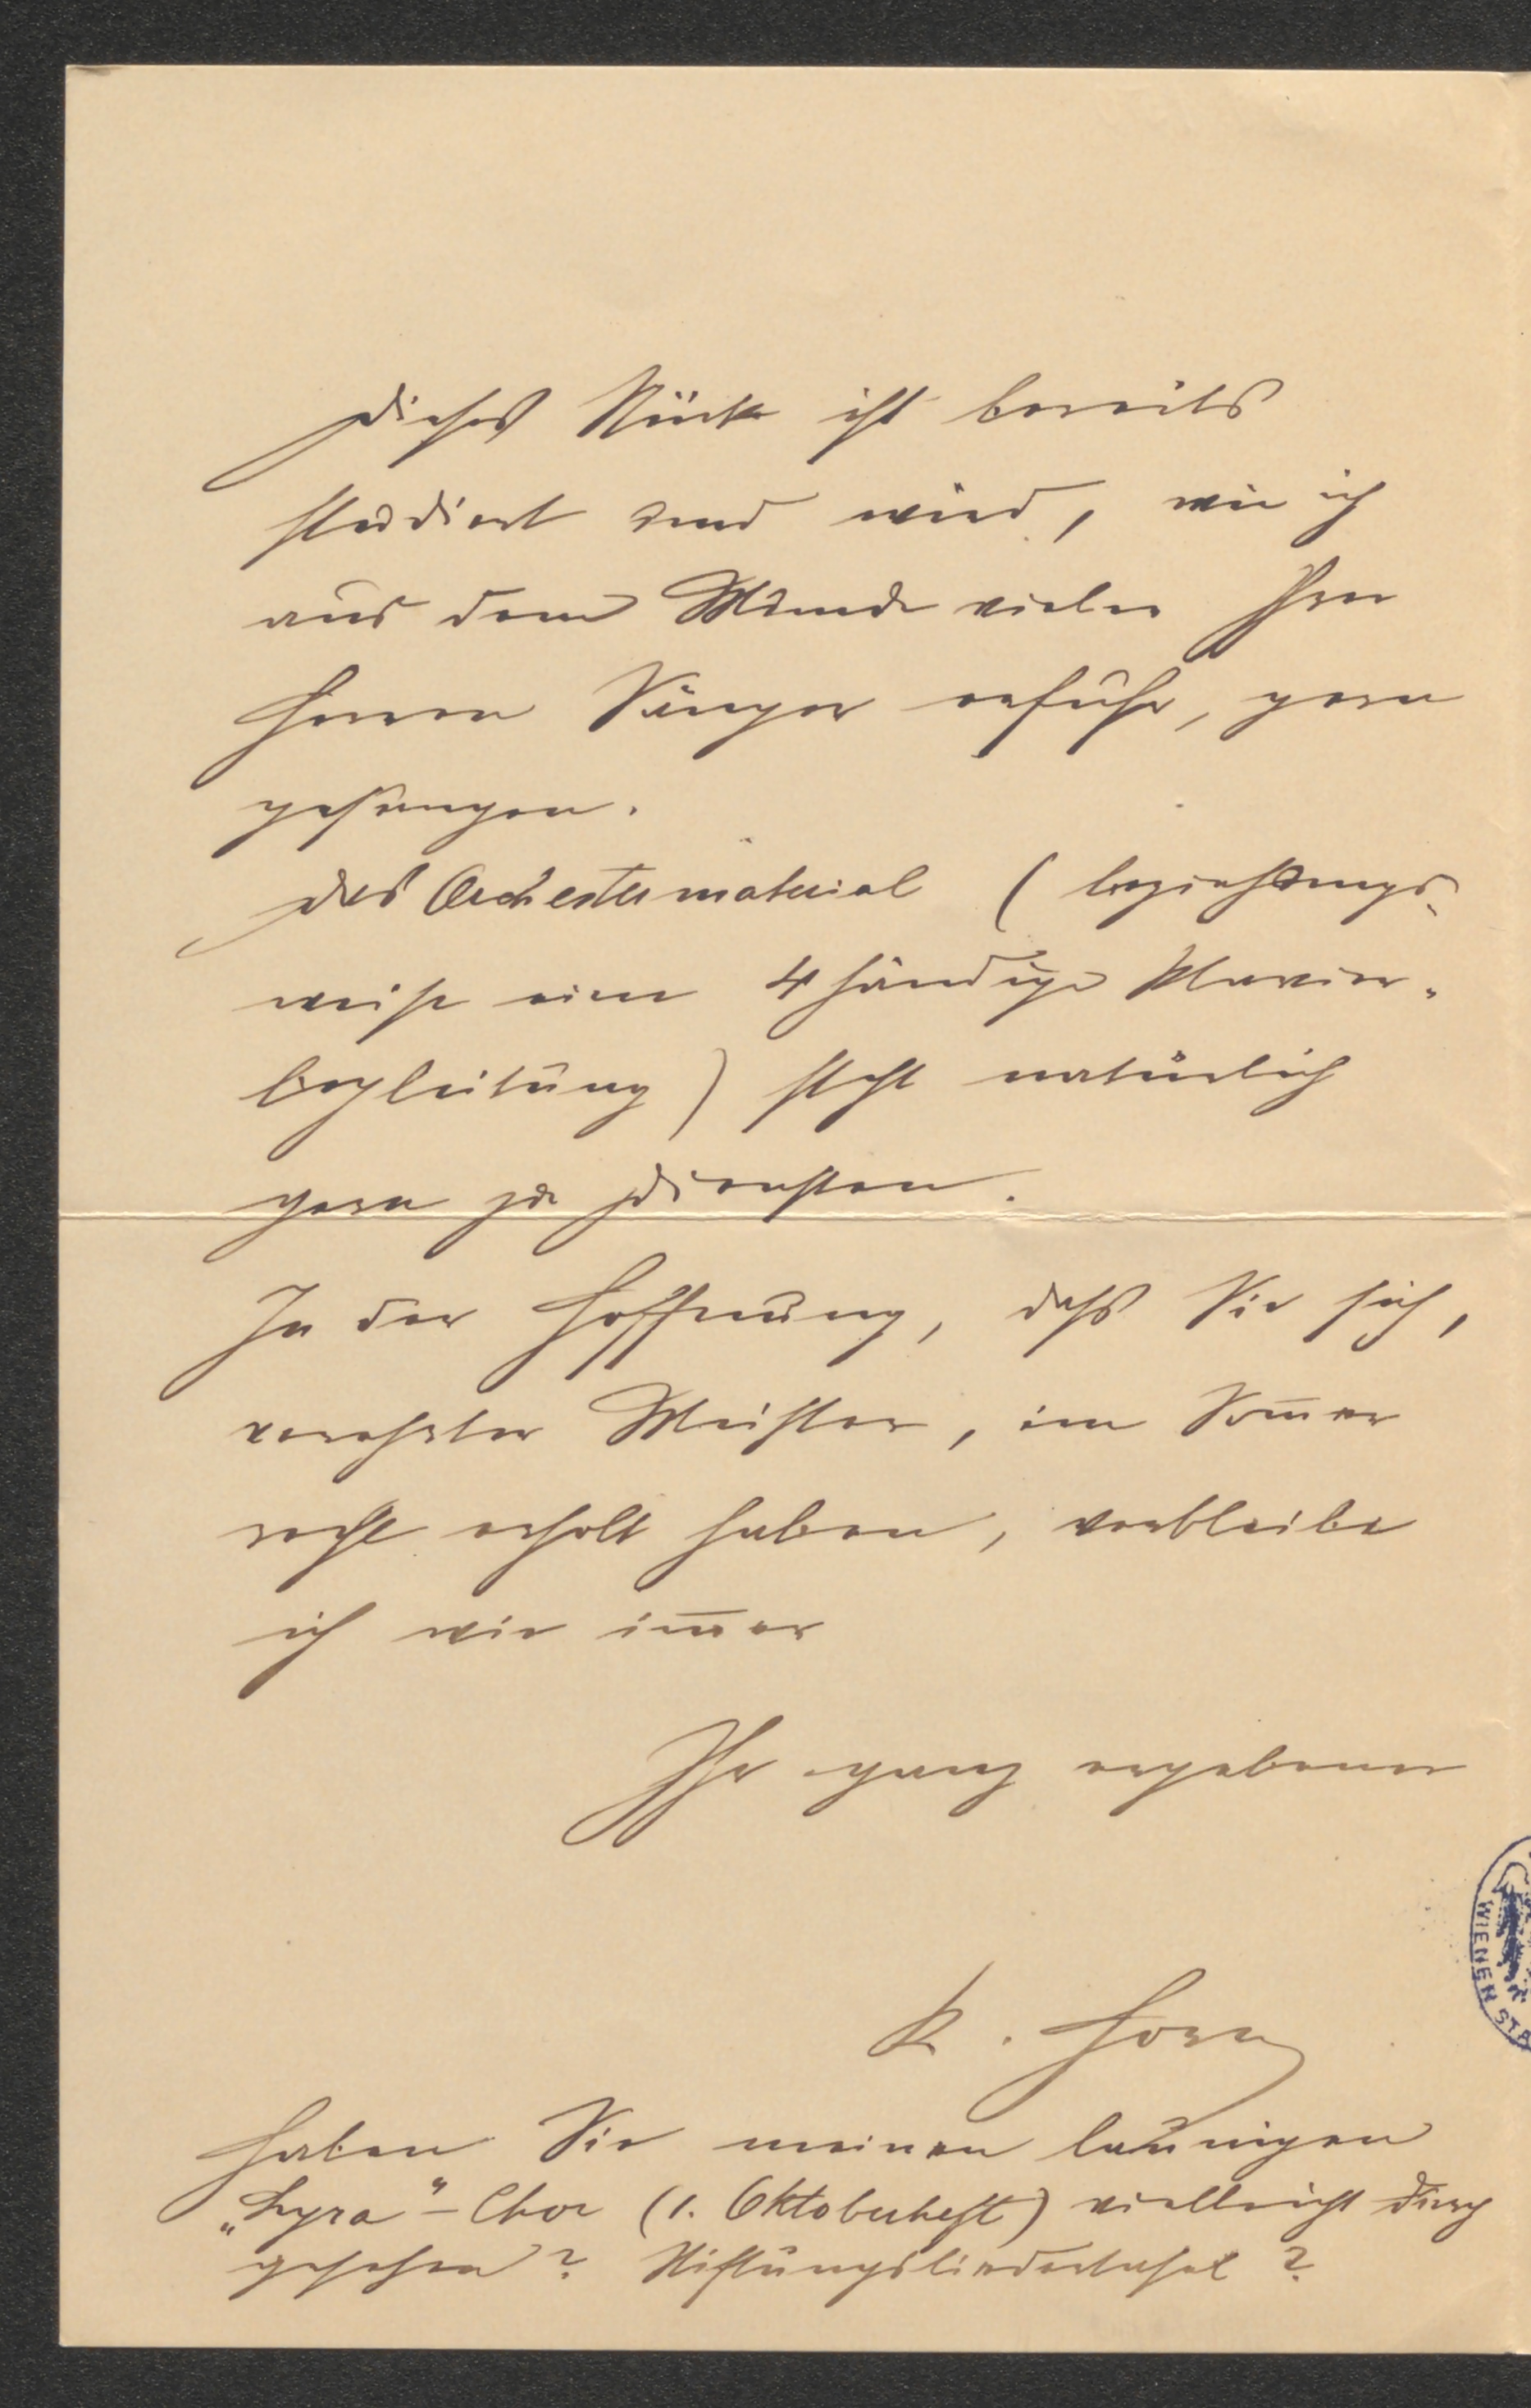 Dieses Stück ist bereits
studiert und wird, wie ich
aus dem Munde vieler Ihrer
Herren Sänger erfuhr, gern
gesungen.
Das Orchestermaterial (beziehungs-
weise eine 4 händige Klavier-
begleitung) steht natürlich
gern zu Diensten.
In der Hoffnung, daß Sie sich,
verehrter Meister, im Som̅er
recht erholt haben, verbleibe
ich wie im̅er
Ihr ganz ergebener
K. Horn
Haben Sie meinen launigen
„Lyra"-Chor (1. Oktoberheft) vielleicht durch
gesehen? Stiftungsliedertafel?
WIENER STA